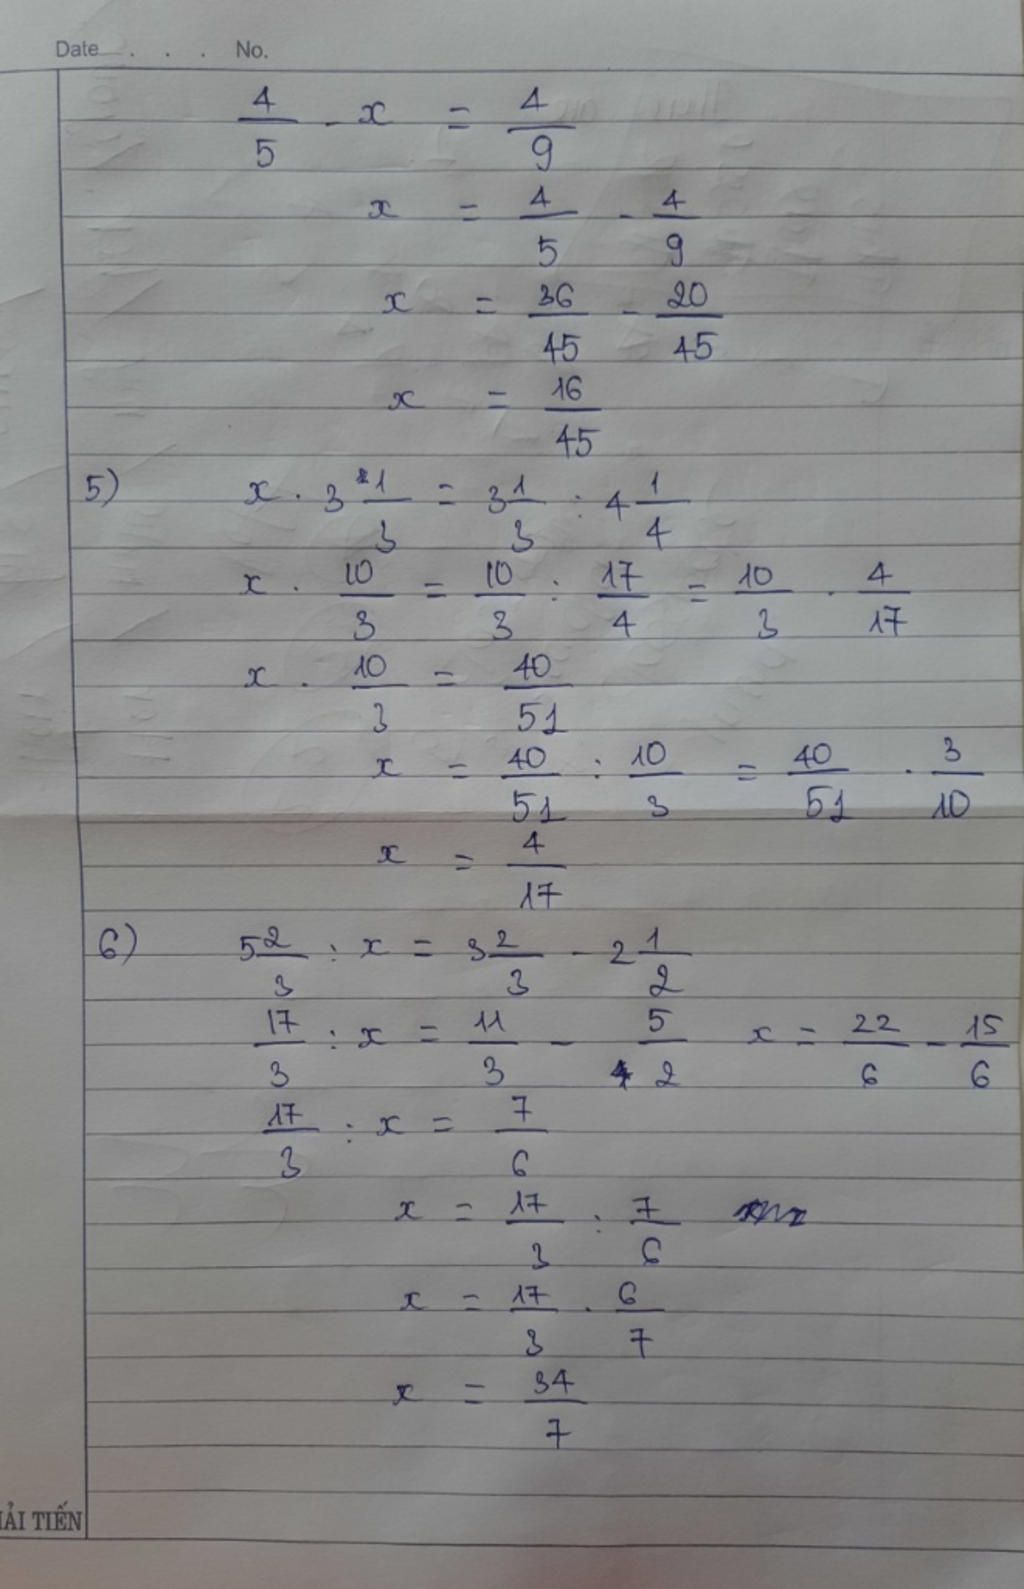 Date . . . No.
4/5 - x = 4/9
x = 4/5 - 4/9
x = 36/45 - 20/45
x = 16/45
5) x . 3 1/3 = 3 1/3 : 4 1/4
x . 10/3 = 10/3 : 17/4 = 10/3 . 4/17
x . 10/3 = 40/51
x = 40/51 : 10/3 = 40/51 . 3/10
x = 4/17
6) 5 2/3 : x = 3 2/3 - 2 1/2
17/3 : x = 11/3 - 5/2 x = 22/6 - 15/6
17/3 : x = 7/6
x = 17/3 : 7/6
x = 17/3 . 6/7
x = 34/7
ẢI TIẾN